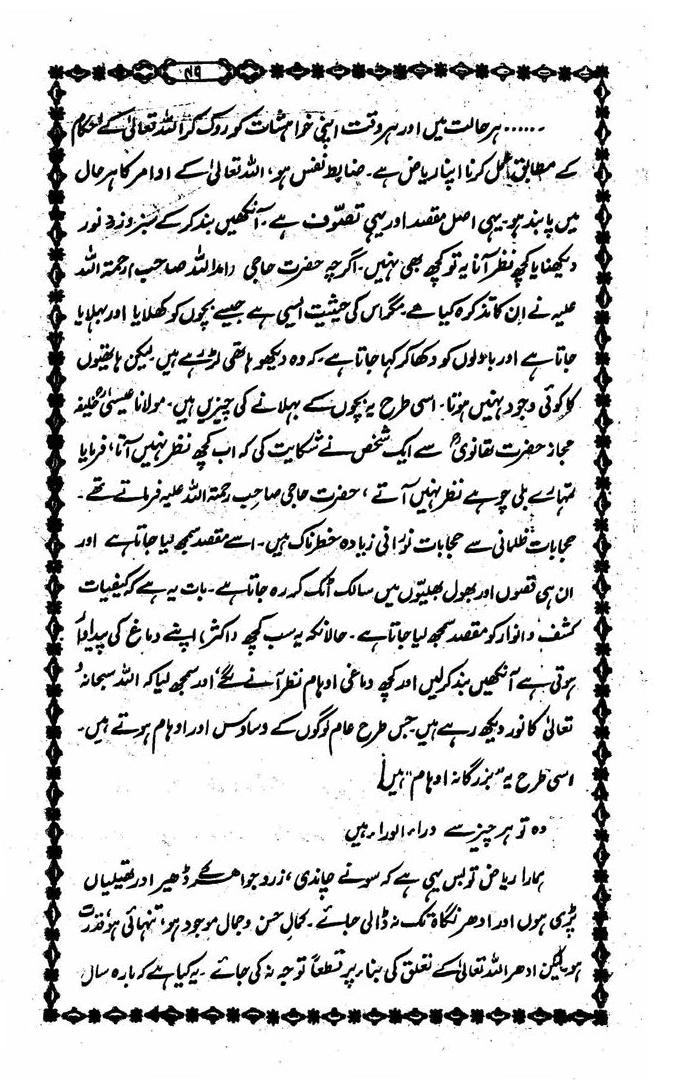 ۵۹
...... ہر حالت میں اور ہر وقت اپنی خواہشات کو روک کر اللہ تعالیٰ کے احکام
کے مطابق عمل کرنا اپنا ریاض ہے۔ ضابط نفس ہو، اللہ تعالیٰ کے اوامر کا ہر حال
میں پابند ہو۔ یہی اصل مقصد اور یہی تصوّف ہے۔ آنکھیں بند کر کے سبز و زرد نور
دیکھنا یا کچھ نظر آنا یہ تو کچھ بھی نہیں۔ اگرچہ حضرت حاجی امداللہ صاحب رحمۃ اللہ
علیہ نے ان کا تذکرہ کیا ہے مگر اس کی حیثیت ایسی ہے جیسے بچوں کو کھلایا اور بہلایا
جاتا ہے اور بادلوں کو دکھا کر کہا جاتا ہے۔ کہ وہ دیکھو ہاتھی لڑ رہے ہیں لیکن ہاتھیوں
کا کوئی وجود نہیں ہوتا۔ اسی طرح یہ بچوں کے بہلانے کی چیزیں ہیں۔ مولانا عیسیٰؒ خلیفہ
مجاز حضرت تھانویؒ سے ایک شخص نے شکایت کی کہ اب کچھ نظر نہیں آتا، فرمایا
تمہارے بلی چوہے نظر نہیں آتے، حضرت حاجی صاحب رحمۃ اللہ علیہ فرماتے تھے۔
حجابات ظلمانی سے حجابات نورانی زیادہ خطرناک ہیں۔ اسے مقصد سمجھ لیا جاتا ہے اور
ان ہی قصوں اور بھول بھلیّوں میں سالک اٹک کہ رہ جاتا ہے۔ بات یہ ہے کہ کیفیات
کشف و انوار کو مقصد سمجھ لیا جاتا ہے۔ حالانکہ یہ سب کچھ (اکثر) اپنے دماغ کی پیداوار
ہوتی ہے آنکھیں بند کر لیں اور کچھ دماغی اوہام نظر آنے لگے، اور سمجھ لیا کہ اللہ سبحانہٗ
تعالیٰ کا نور دیکھ رہے ہیں۔ جس طرح عام لوگوں کے وساوس اور اوہام ہوتے ہیں۔
اسی طرح یہ "بزرگانہ اوہام" ہیں!
وہ تو ہر چیز سے وراء الوراء ہیں
ہمارا ریاض تو بس یہی ہے کہ سونے چاندی، زر و جواہر کے ڈھیر اور تھیلیاں
پڑی ہوں اور ادھر نگاہ تک نہ ڈالی جائے۔ کمال حسن و جمال موجود ہو، تنہائی ہو، قدرت
ہو، لیکن ادھر اللہ تعالیٰ کے تعلق کی بناء پر قطعاً توجہ نہ کی جائے۔ یہ کیا ہے کہ بارہ سال